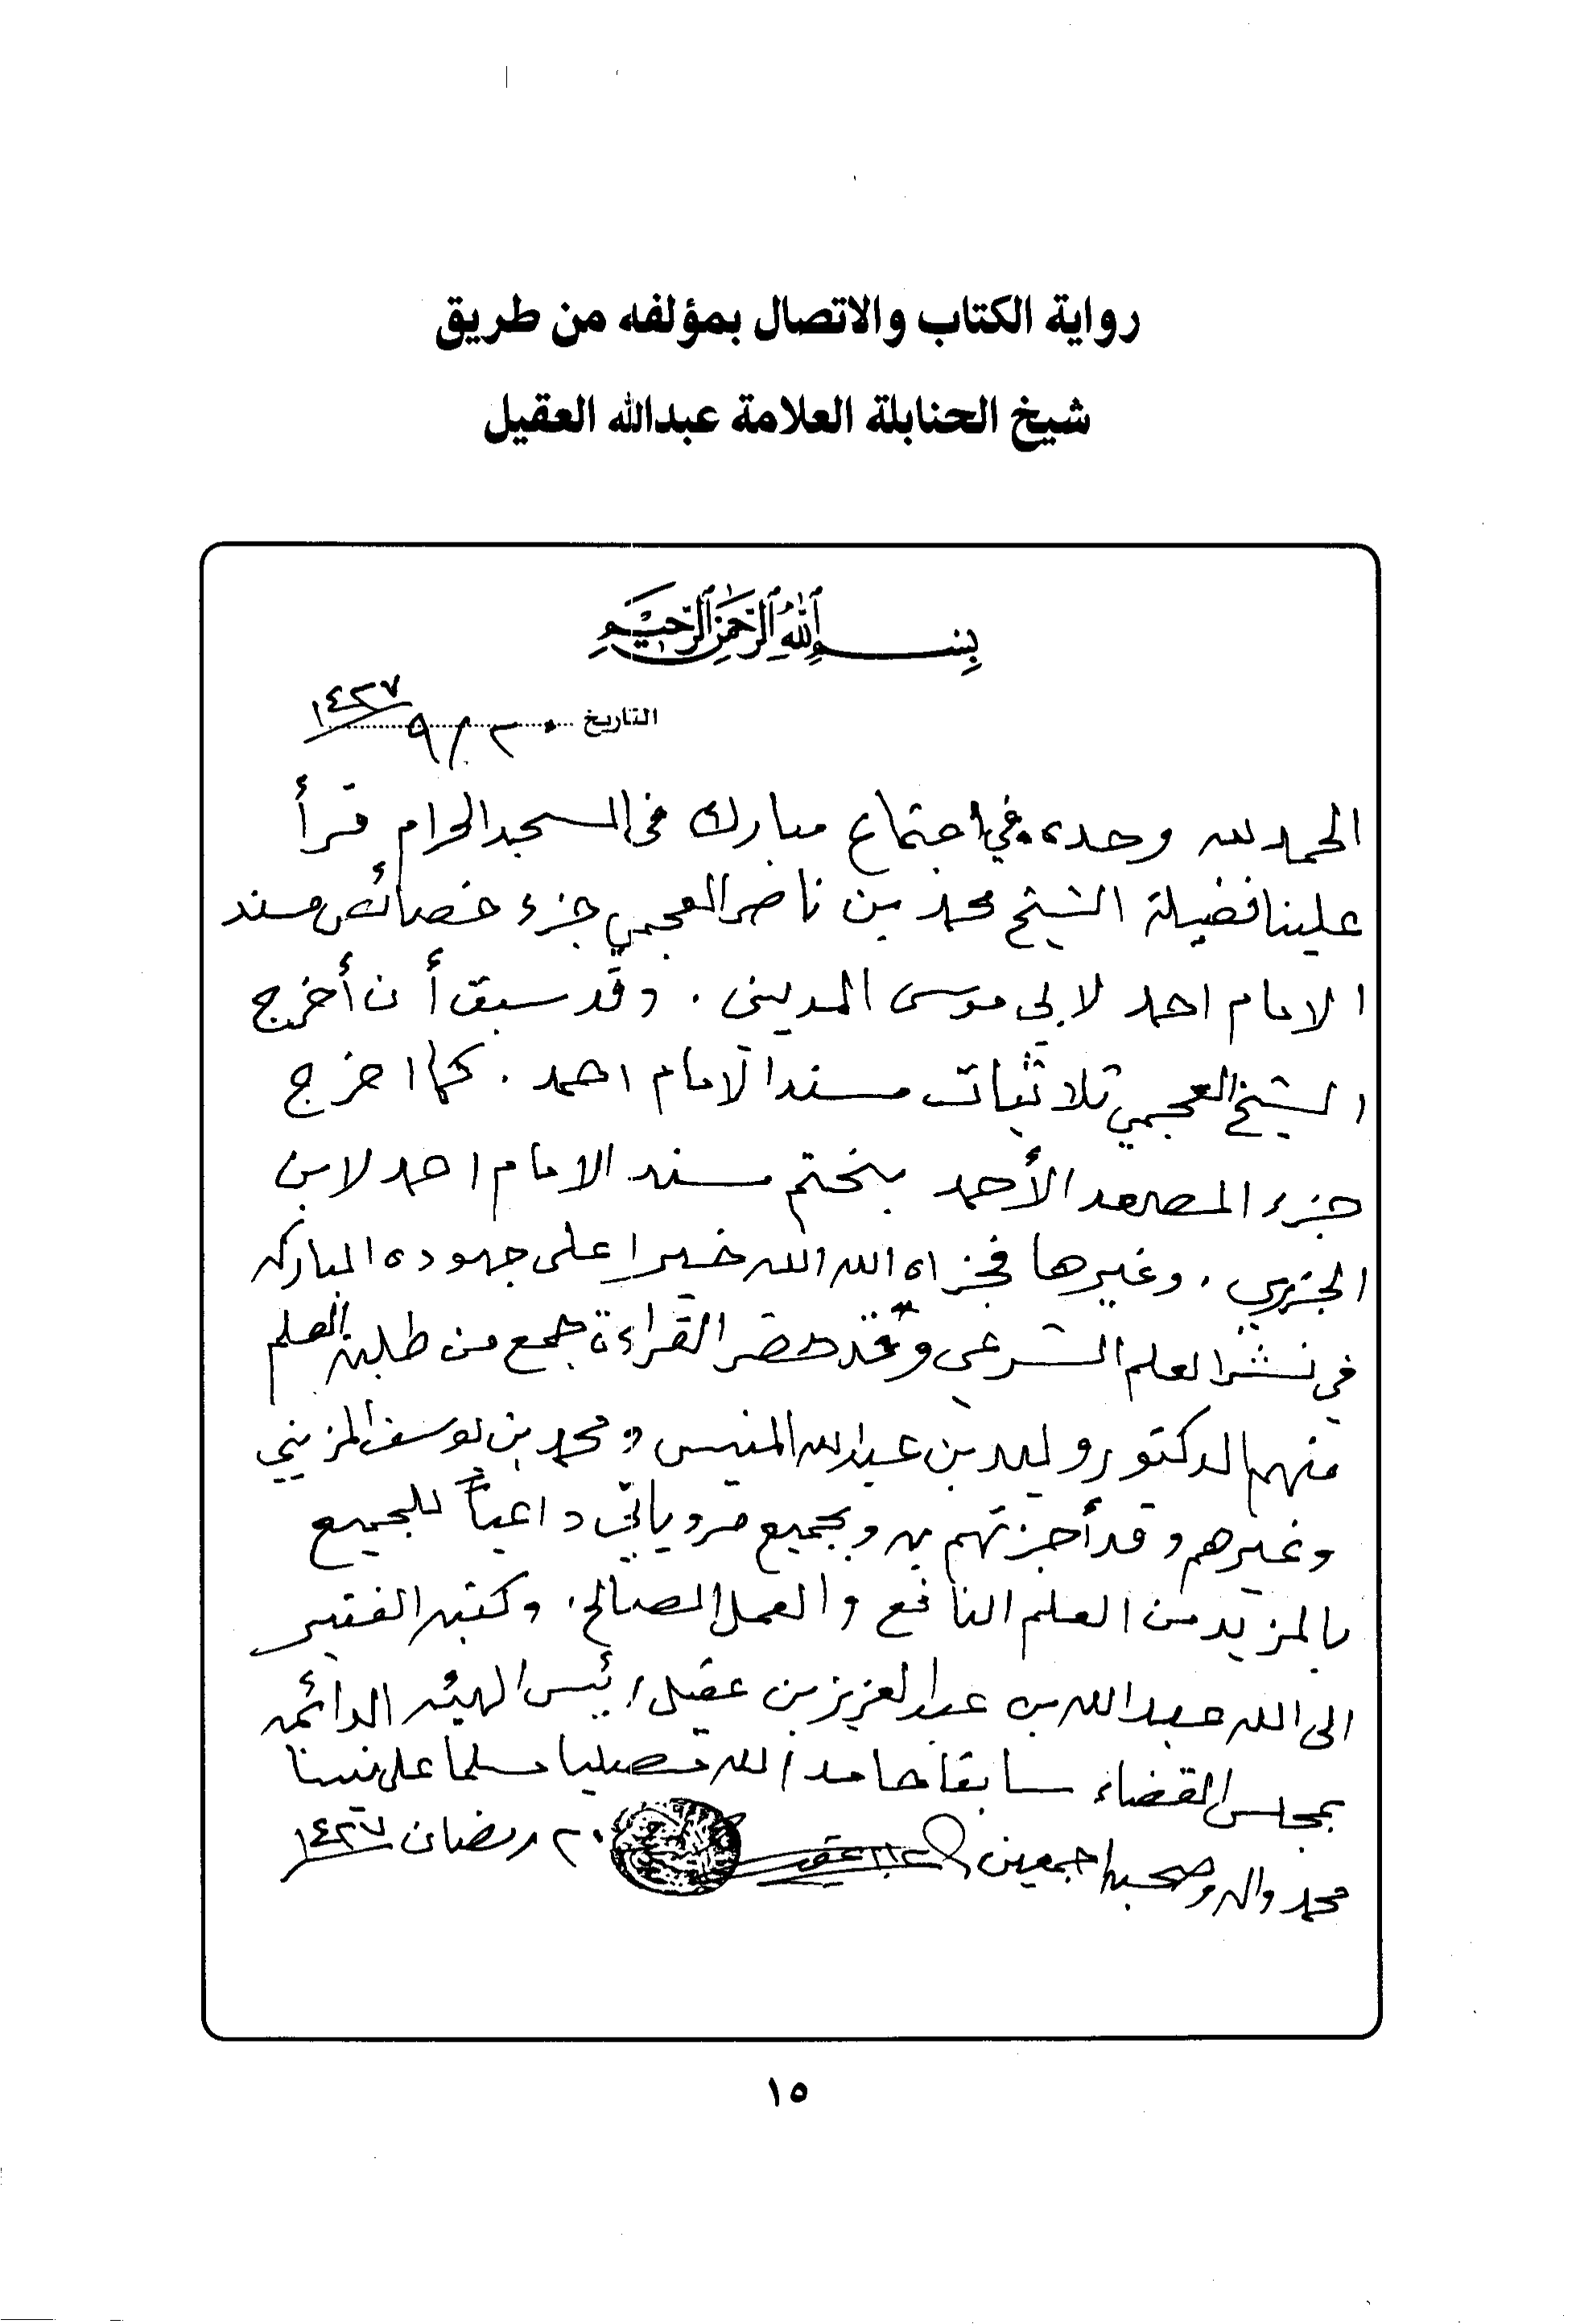 رواية الكتاب والاتصال بمؤلفه من طريق
شيخ الحنابلة العلامة عبدالله العقيل
بسم الله الرحمن الرحيم
التاريخ ٢٠/٩/١٤٢٧
الحمد لله وحده. في اجتماع مبارك في المسجد الحرام قرأ
علينا فضيلة الشيخ محمد بن ناصر العجمي جزء خصائص مسند
الامام احمد لابي موسى المديني. وقد سبق أن أخرج
الشيخ العجمي ثلاثيات مسند الامام احمد. كما اخرج
جزء المصعد الأحمد بختم مسند الامام احمد لابن
الجزري. وغيرها فجزاه الله الله خيرا على جهوده المباركه
في نشر العلم الشرعي وقد حضر القراءة جمع من طلبة العلم
منهم الدكتور وليد بن عبدالله المنيس و محمد بن يوسف المزيني
وغيرهم وقد أجزتهم به وبجميع مروياتي داعياً للجميع
بالمزيد من العلم النافع والعمل الصالح. وكتبه الفقير
الى الله عبدالله بن عبدالعزيز بن عقيل رئيس الهيئه الدائمه
بمجلس القضاء سابقا حامدا لله مصليا مسلما على نبينا
محمد واله وصحبه اجمعين ٢٠ رمضان ١٤٢٧
١٥